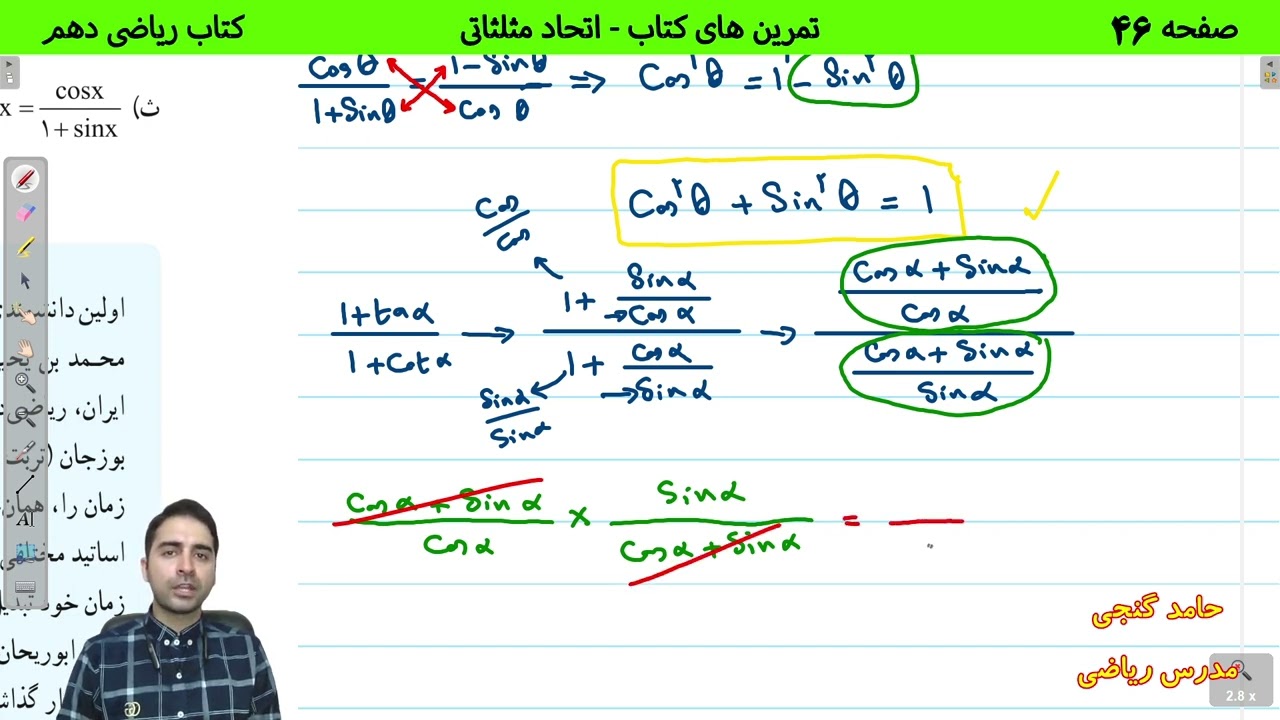 صفحه ۴۶
تمرین های کتاب - اتحاد مثلثاتی
کتاب ریاضی دهم
ث) x = cosx / ۱ + sinx
Cos θ / 1+Sinθ = 1-Sinθ / Cos θ ⇒ Cos²θ = 1 - Sin²θ
Cos²θ + Sin²θ = 1 ✓
Cos / Cos
1+tanα / 1+Cotα → 1+ Sinα / Cosα / 1+ Cosα / Sinα → Cosα + Sinα / Cosα / Cosα + Sinα / Sinα
Sinα / Sinα
Cosα + Sinα / Cosα × Sinα / Cosα + Sinα =
محمد بن
ایران،
بوزجان (تربت
زمان را، همان
اساتید
زمان خود
ابوریحان
AI
حامد گنجی
مدرس ریاضی
2.8 x